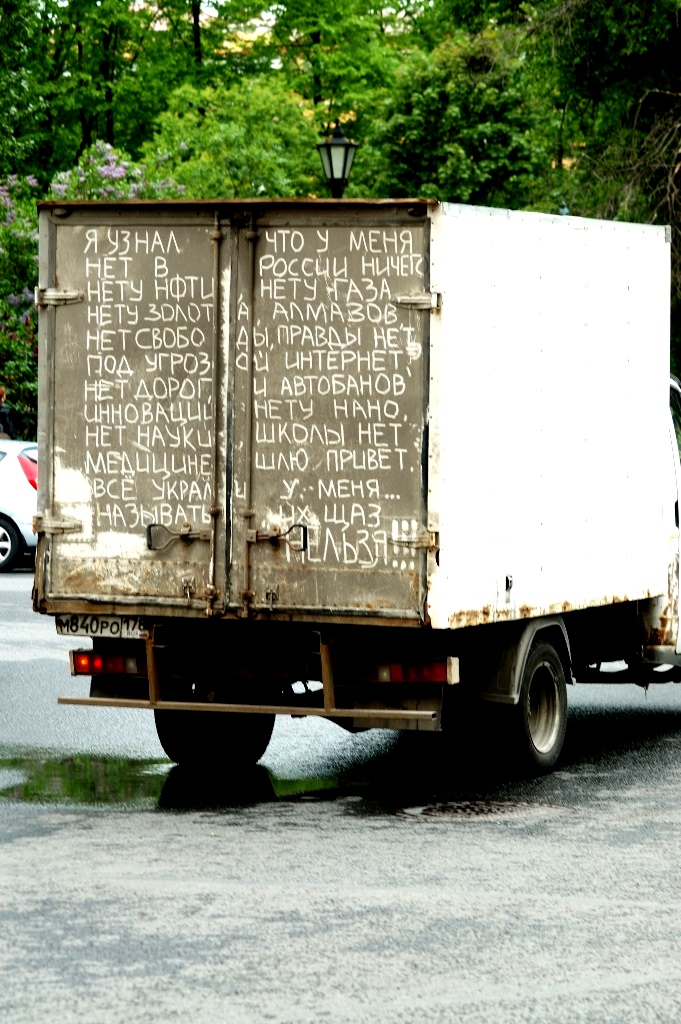 Я УЗНАЛ ЧТО У МЕНЯ
НЕТ В РОССИИ НИЧЕГ
НЕТУ НФТИ НЕТУ ГАЗА
НЕТУ ЗОЛОТА АЛМАЗОВ
НЕТ СВОБОДЫ, ПРАВДЫ НЕТ
ПОД УГРОЗОЙ ИНТЕРНЕТ
НЕТ ДОРОГ И АВТОБАНОВ
ИННОВАЦИЙ НЕТУ НАНО,
НЕТ НАУКИ ШКОЛЫ НЕТ
МЕДИЦИНЕ ШЛЮ ПРИВЕТ.
ВСЁ УКРАЛИ У МЕНЯ...
НАЗЫВАТЬ ИХ ЩАЗ
НЕЛЬЗЯ!!!
М840РО 178